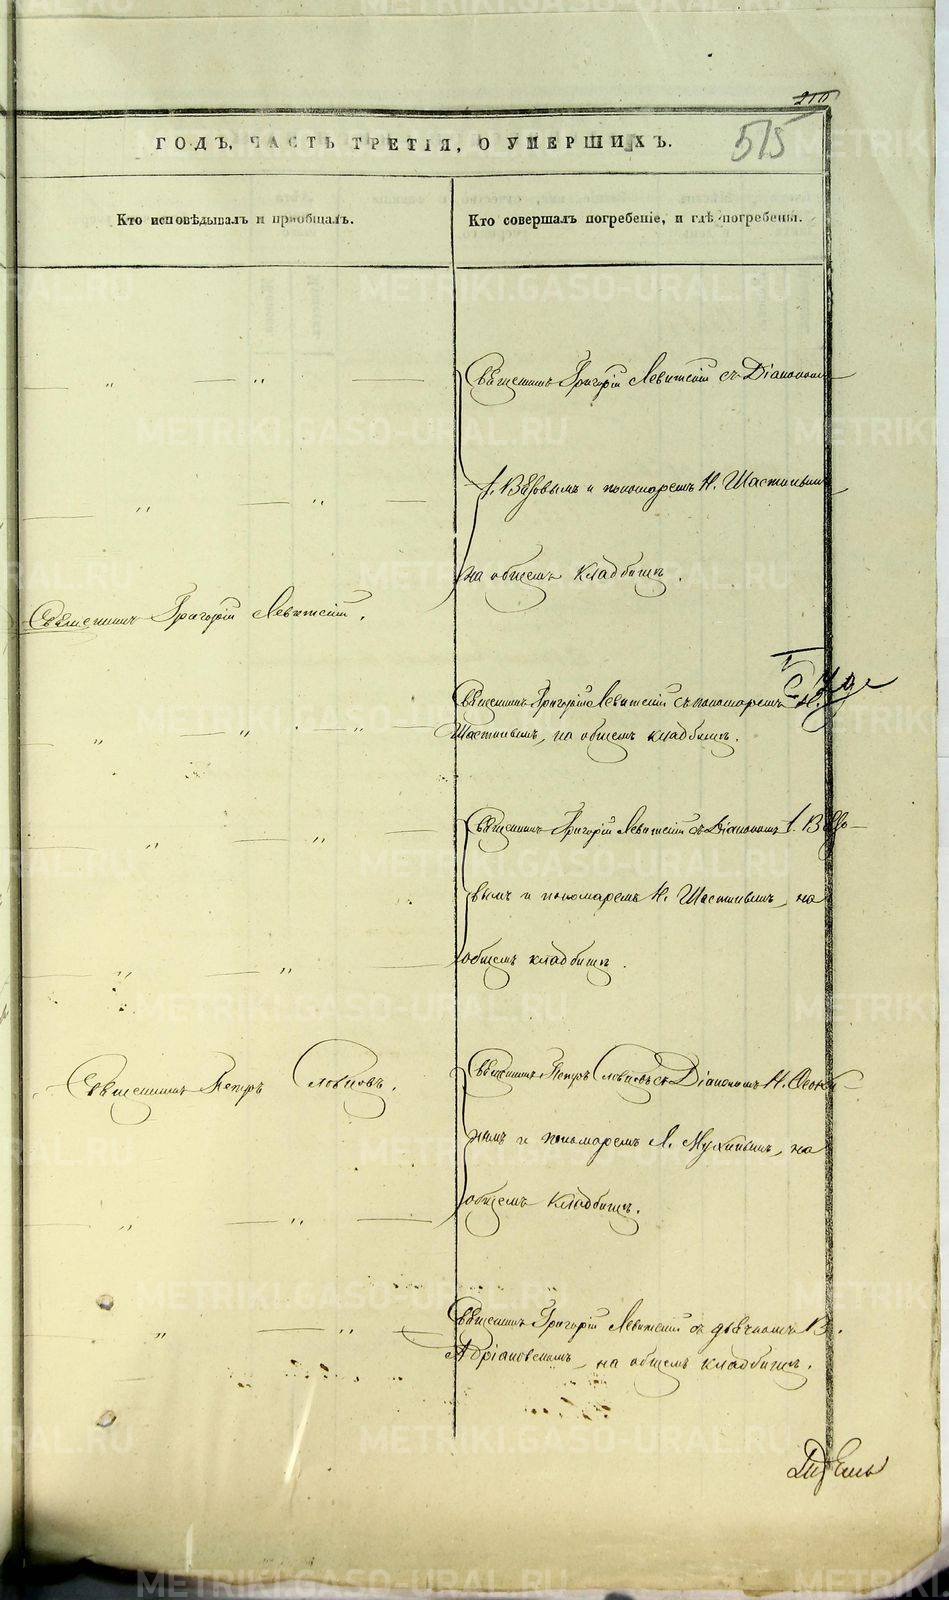 210
515
ГОДЪ, ЧАСТЬ ТРЕТІЯ, О УМЕРШИХЪ.
Кто исповѣдывалъ и пріобщалъ.
Кто совершалъ погребеніе, и гдѣ погребены.
Священникъ Григорій Левитскій съ Діакономъ
І. Вѣтовымъ и пономаремъ Н. Шастинымъ
на общемъ кладбищѣ.
Священникъ Григорій Левитскій.
Священникъ Григорій Левитскій съ пономаремъ Н.
Шастинымъ, на общемъ кладбищѣ.
Священникъ Григорій Левитскій съ Діакономъ І.
вымъ и пономаремъ Н. Шастинымъ, на
общемъ кладбищѣ.
Священникъ Петръ Словцовъ.
Священникъ Петръ Словцовъ съ Діакономъ Н.
нымъ и пономаремъ Мухинымъ, на
общемъ кладбищѣ.
Священникъ Григорій Левитскій съ дьячкомъ В.
Адріановскимъ, на общемъ кладбищѣ.
METRIKI.GASO-URAL.RU